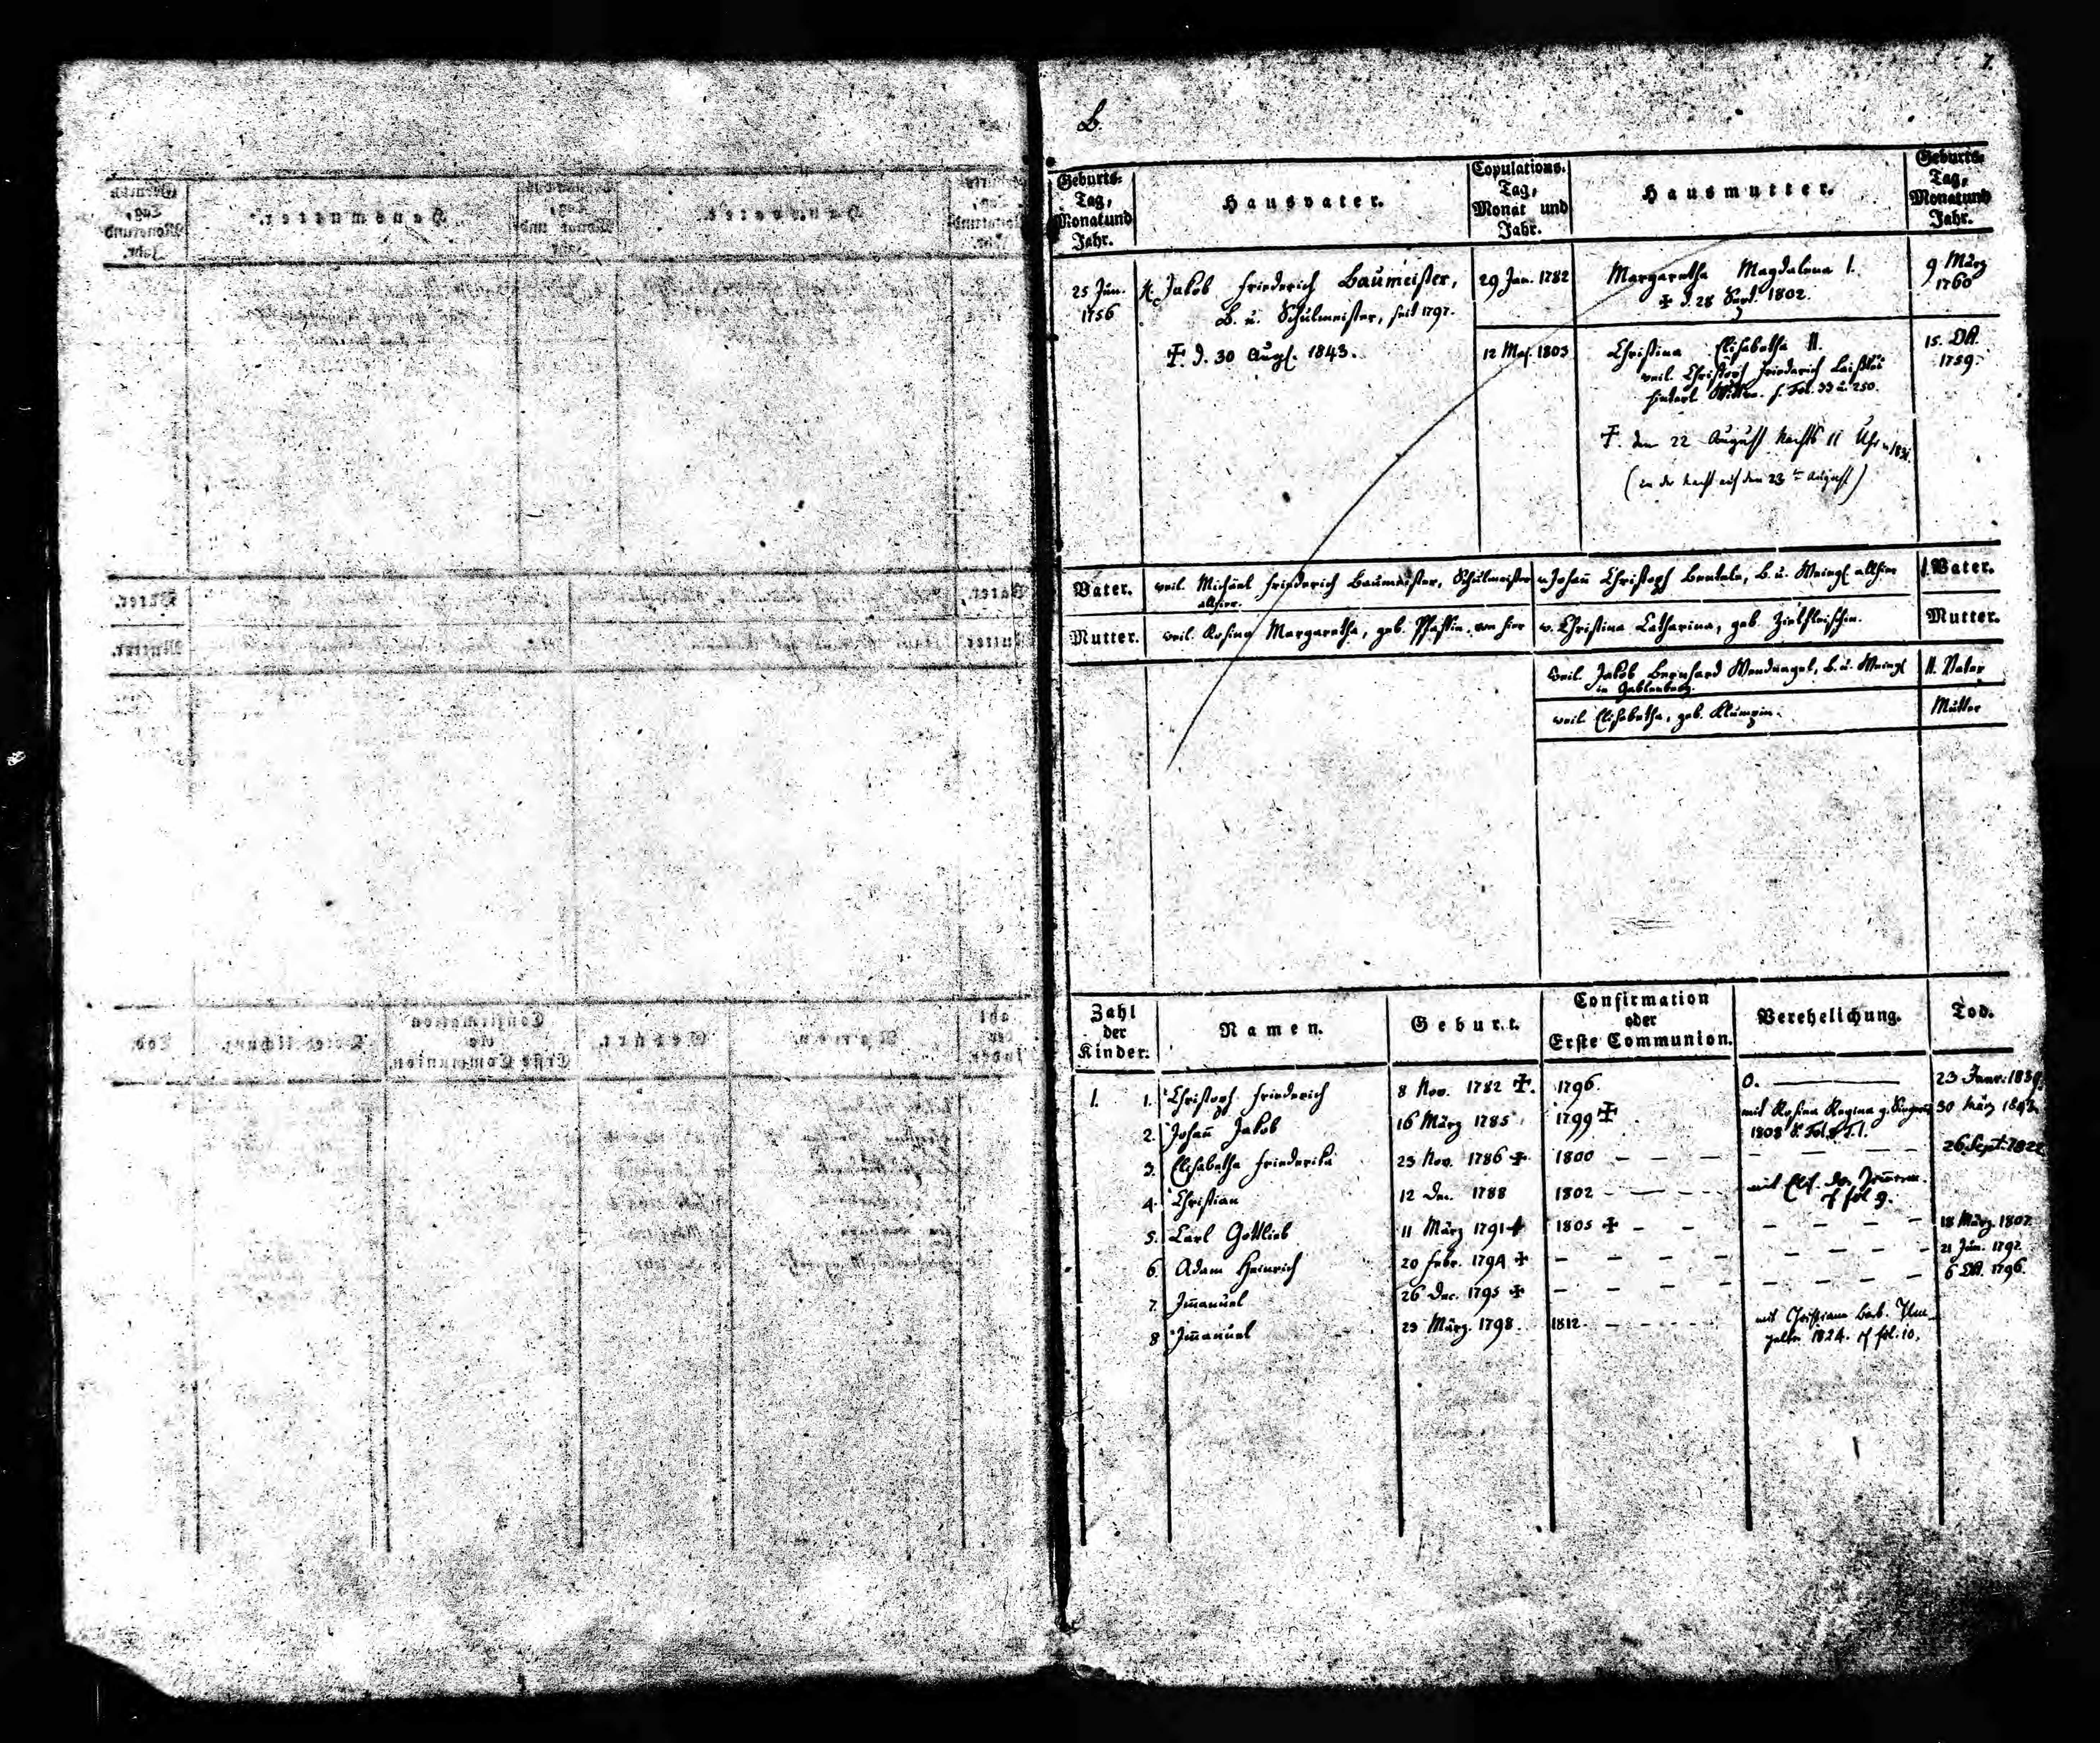 7.
B.
Geburts-
Tag,
Monat und
Jahr.
Hausvater.
Copulations-
Tag,
Monat und
Jahr.
Hausmutter.
Geburts-
Tag,
Monat und
Jahr.
25 Jun.
1756
Jakob Friederich Baumeister,
B. u. Schulmeister, seit 1797.
✝ d. 30 Aug. 1843.
29 Jan. 1782
Margaretha Magdalena I.
✝ d. 28 Sept. 1802.
9 März
1760
12 Maj. 1803
Christina Elisabetha II.
weil. Christoph Friederich
hinterl. Wittwe. s. Fol. 33 u. 250.
15. Okt.
1759.
✝. den 22 August Nachts 11 Uhr
(in der Nacht auf den 23ten August)
Vater.
weil. Michael Friederich Baumeister, Schulmeister
allhier.
Johann Christoph Bentele, B. u. Weing. allhier
I. Vater.
Mutter.
weil. Rosina Margaretha, geb. Pfaffin, von hier
Christina Catharina, geb.
Mutter.
weil. Jakob Bernhard Wendnagel, B. u. Weing.
in Gablenberg.
II. Vater
weil. Elisabetha, geb. Klumpin.
Mutter
Zahl
der
Kinder.
Namen.
Geburt.
Confirmation
oder
Erste Communion.
Verehelichung.
Tod.
I. 1. Christoph Friederich 8 Nov. 1782 ✝. 1796. 0. 23 Janr. 1839
2. Johann Jakob 16 März 1785 1799 ✝ mit Rosina Regina 30 März 1843
1808
3. Elisabetha Friederika 23 Nov. 1786 ✝ 1800 – – – – – 26 Sept. 1822
4. Christian 12 Dec. 1788 1802 – – – mit Elis. Dor.
fol 9.
5. Carl Gottlieb 11 März 1791 ✝ 1805 ✝ – – – – – – 18 März 1807.
6. Adam Heinrich 20 Febr. 1794 ✝ – – – – – – – – 21 Jun. 1797.
7. Immanuel 26 Dec. 1795 ✝ – – – – – – – – 6 Okt. 1796.
8 Immanuel 29 März. 1798. 1812. – – – – mit Christiane Barb.
1824. fol. 10.